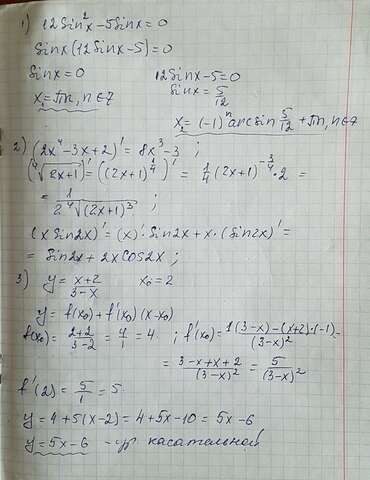 1) 12Sin²x-5Sinx=0
Sinx(12Sinx-5)=0
Sinx=0 12Sinx-5=0
Sinx=5/12
x₁=πn, n∈Z x₂=(-1)ⁿarcsin 5/12+πn, n∈Z
2) (2x⁴-3x+2)'=8x³-3 ;
(⁴√(2x+1))'=((2x+1)^(1/4))'=1/4(2x+1)^(-3/4)·2=
=1/(2⁴√(2x+1)³) ;
(xSin2x)'=(x)'·Sin2x+x·(Sin2x)'=
=Sin2x+2xCos2x ;
3) y=(x+2)/(3-x) x₀=2
y=f(x₀)+f'(x₀)(x-x₀)
f(x₀)=(2+2)/(3-2)=4/1=4 ; f'(x₀)=(1(3-x)-(x+2)·(-1))/(3-x)²=
=(3-x+x+2)/(3-x)²=5/(3-x)²
f'(2)=5/1=5
y=4+5(x-2)=4+5x-10=5x-6
y=5x-6 -ур касательной